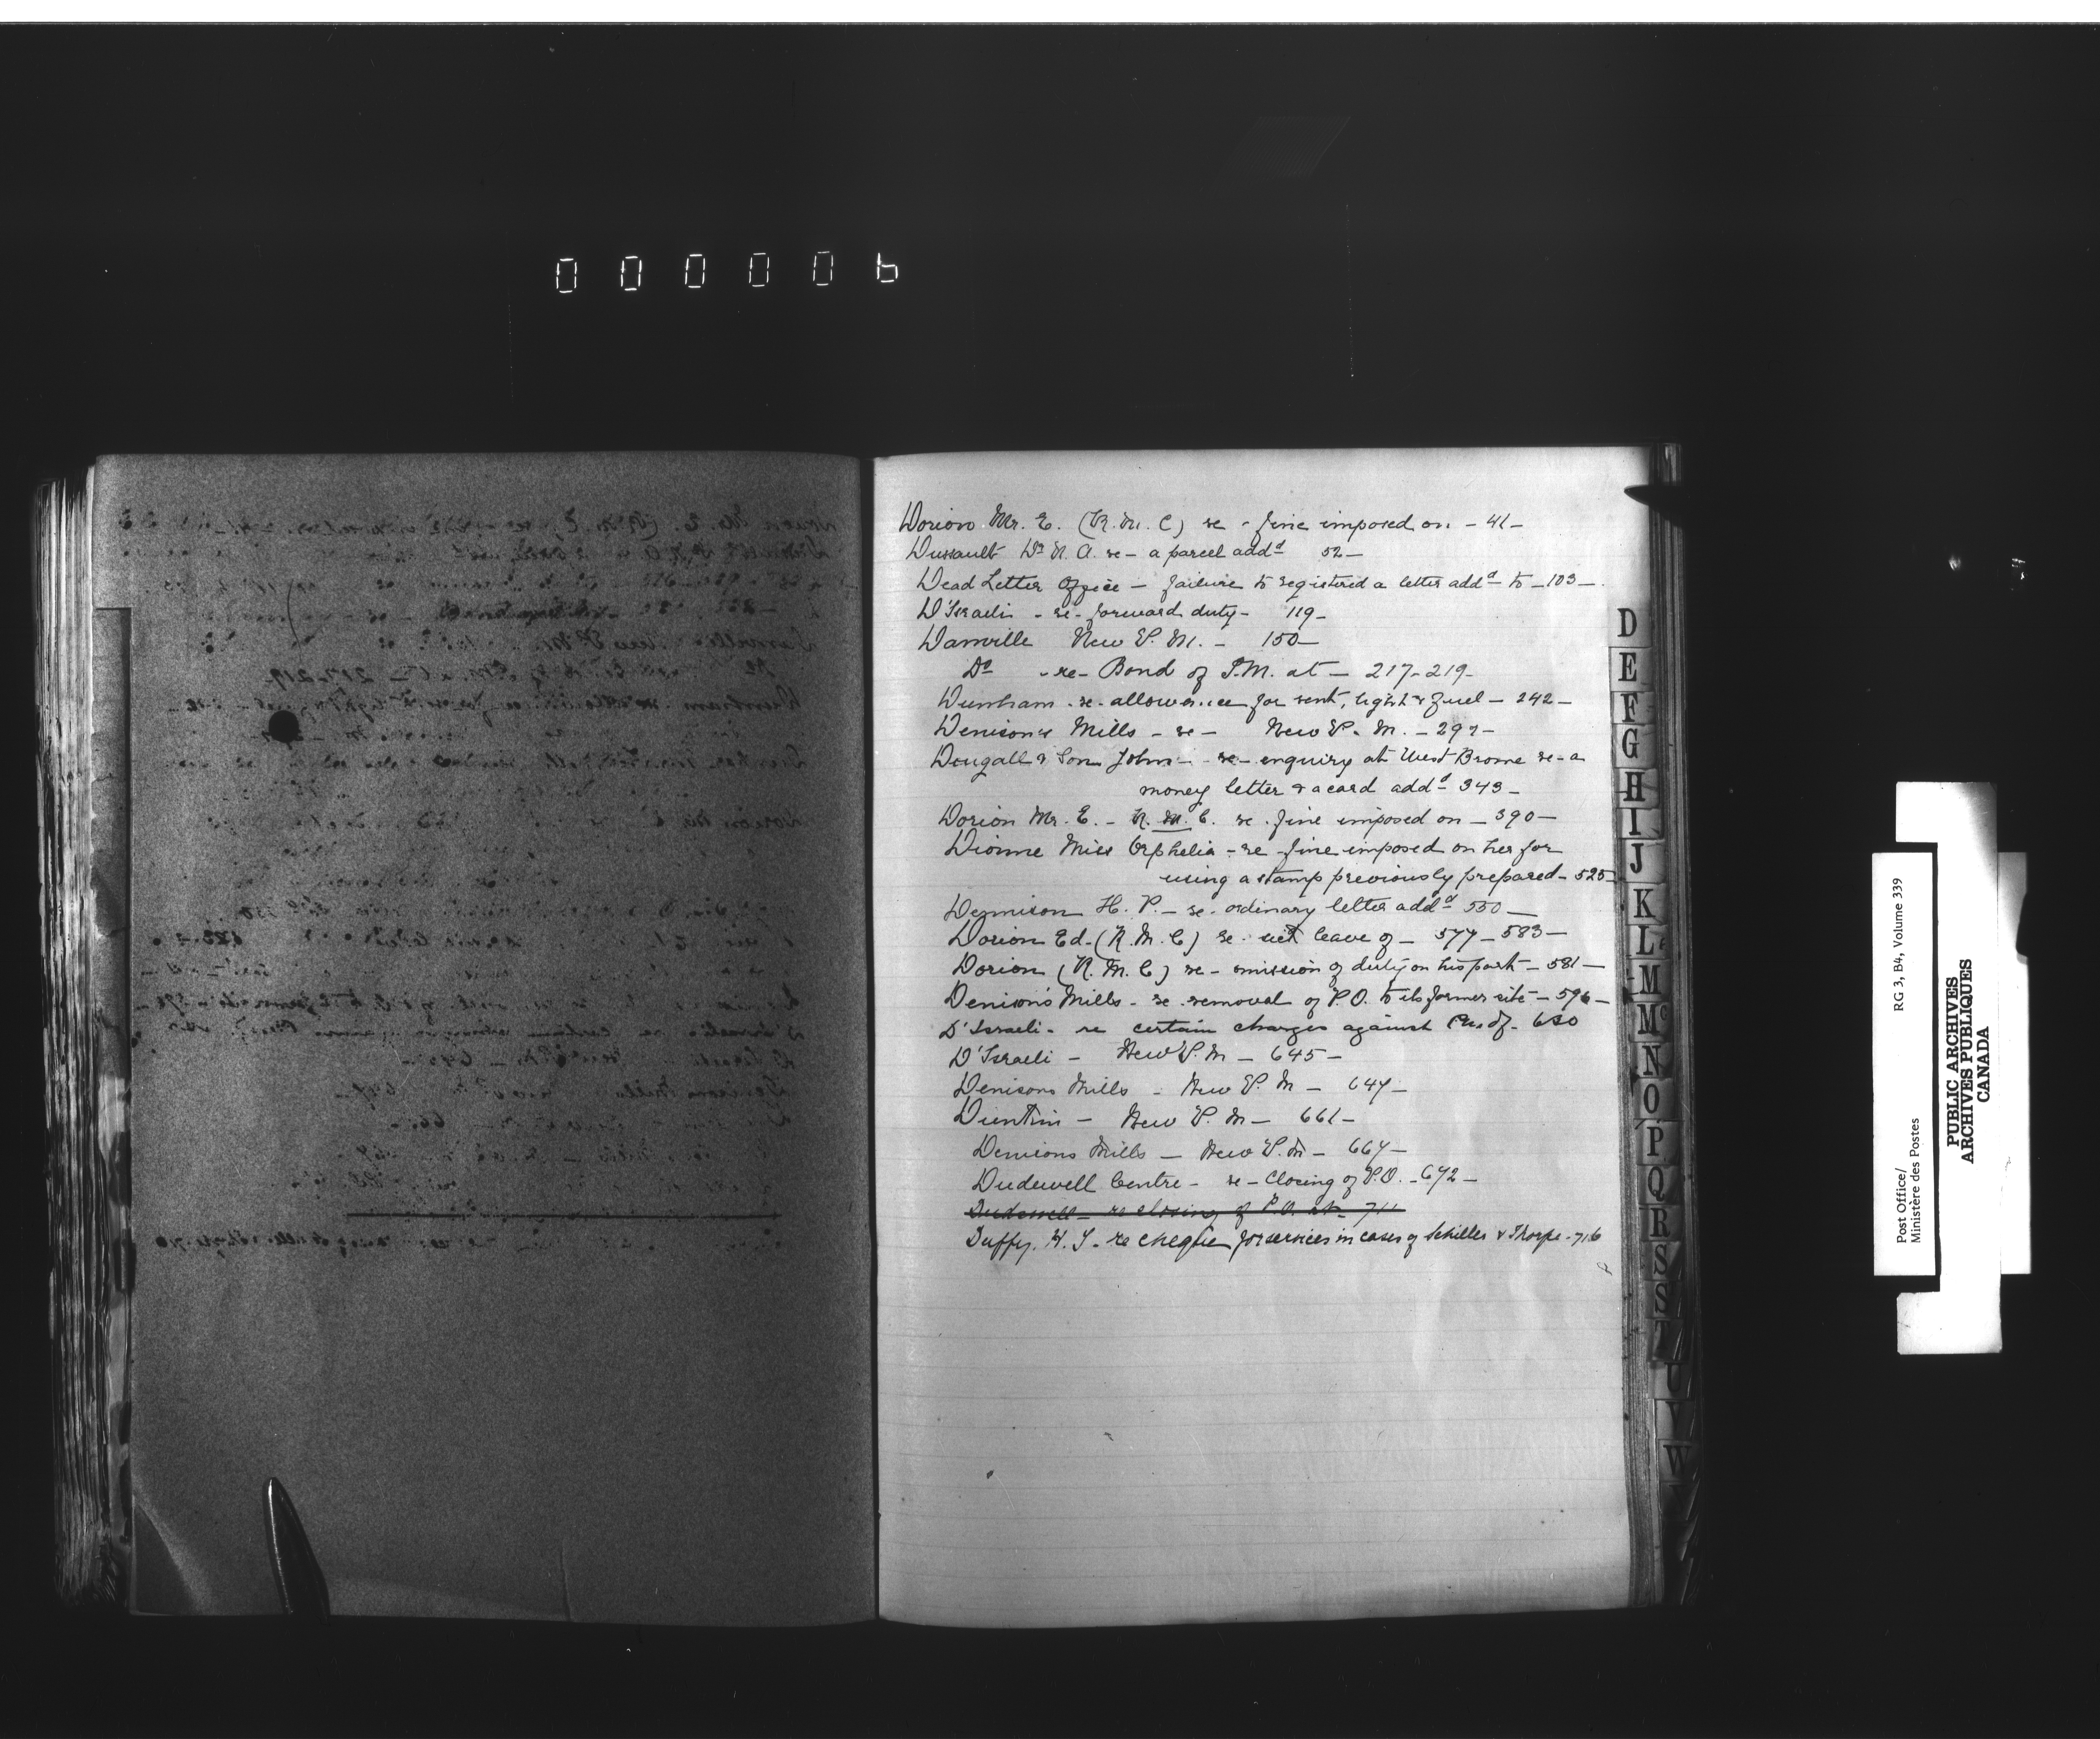 000006
Dorion Mr. E. (R. M. C) re - fine imposed on - 41 -
Dussault Dr N. A. re - a parcel addd 52 -
Dead Letter Office - failure to registered a letter addd to - 103 -
D'Israeli - re - forward duty - 119 -
Danville New P. M. - 150 -
Do - re - Bond of P.M. at - 217-219 -
Dunham - re - allowance for rent, light & fuel - 242 -
Denison's Mills - re - New P. M. - 297 -
Dougall & Son John - re - enquiry at West Brome re - a
money letter & a card addd - 343 -
Dorion Mr. E. - R. M. C. re - fine imposed on - 390 -
Dionne Miss Orphelia - re - fine imposed on her for
using a stamp previously prepared - 525
Dennison H. P. - re - ordinary letter addd 550 -
Dorion Ed. (R. M. C) re - leave of - 577 - 583 -
Dorion (R. M. C) re - omission of duty on his part - 581 -
Denison's Mills - re - removal of P.O. to its former site - 596 -
D'Israeli - re certain charges against
D'Israeli - New P. M - 645 -
Denisons Mills - New P. M - 647 -
New P. M - 661 -
Denisons Mills - New P. M - 667 -
Dudswell Centre - re - Closing of P.O. - 672 -
Dudswell - re closing of P.O. at - 711
Duffy, H. T. - re cheque for services in cases of Schiller & Thorpe - 716
D
E
F
G
H
I
J
K
L
M
Mc
N
O
P
Q
R
S
S
T
U
V
W
Post Office/
Ministère des Postes
RG 3, B4, Volume 339
PUBLIC ARCHIVES
ARCHIVES PUBLIQUES
CANADA